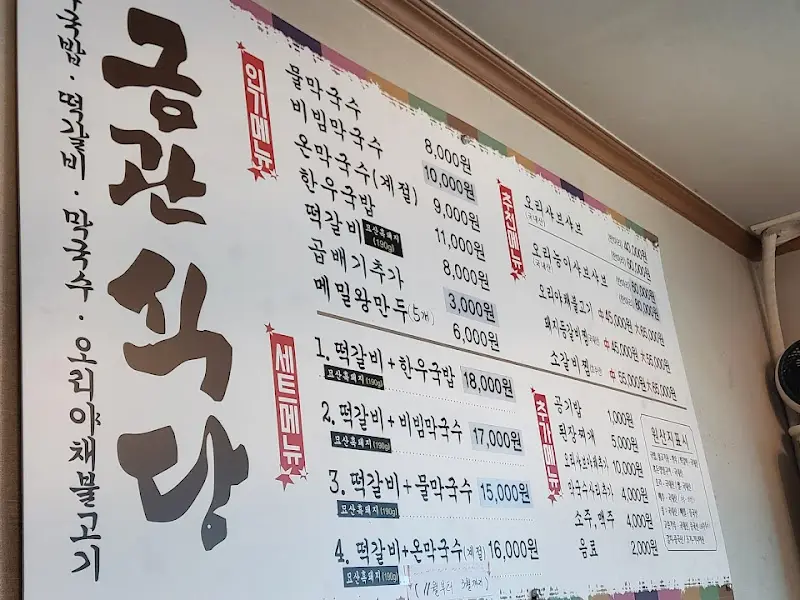 국밥 · 떡갈비 · 막국수 · 오리야채불고기
금관식당
인기메뉴
물막국수 8,000원
비빔막국수 10,000원
온막국수(계절) 9,000원
한우국밥 11,000원
떡갈비 묘산흑돼지 (190g) 8,000원
곱배기추가 3,000원
메밀왕만두(5개) 6,000원
세트메뉴
1. 떡갈비+한우국밥 18,000원
묘산흑돼지 (190g)
2. 떡갈비+비빔막국수 17,000원
묘산흑돼지 (190g)
3. 떡갈비+물막국수 15,000원
묘산흑돼지 (190g)
4. 떡갈비+온막국수(계절) 16,000원
묘산흑돼지 (190g)
(11월부터
추천메뉴
오리샤브샤브 40,000원
(국내산)
오리능이샤브샤브
(국내산)
오리야채불고기 中45,000원 大65,000원
돼지등갈비찜 中45,000원 大55,000원
소갈비찜 中55,000원 大65,000원
추가메뉴
공기밥 1,000원
된장찌개 5,000원
오리샤브야채추가 10,000원
막국수사리추가 4,000원
소주, 맥주 4,000원
음료 2,000원
원산지표시